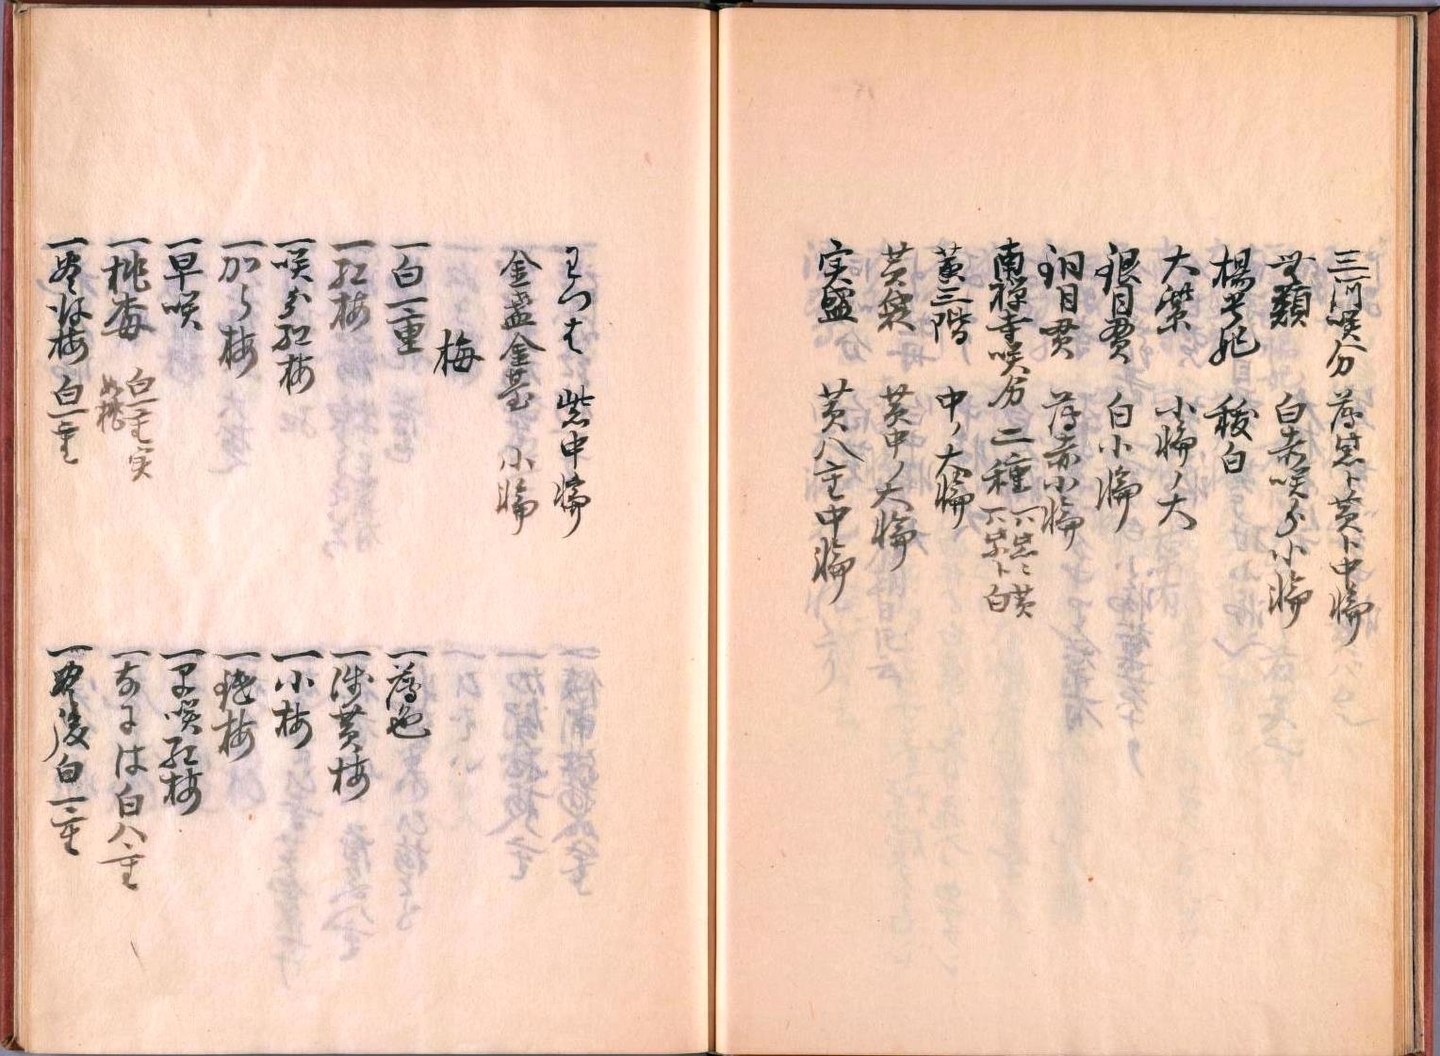 三川咲分 薄紫ト黄ト中輪
無類 白赤咲分小輪
楊貴妃 秡白
大紫 小輪ノ大
銀目貫 白小輪
銅目貫 薄赤小輪
南禅寺咲分 二種 一ハ紫ト黄 一ハ紫ト白
黄三階 中ノ大輪
黄袋 黄中ノ大輪
実盛 黄八重中輪
紫中輪
金盞金台 小輪
梅
一白一重
一紅梅
一咲分紅梅
一加ら梅
一早咲
一桃梅 白一重実如桃
白一重
一薄色
一浅黄梅
一小梅
一早咲紅梅
一なには白八重
一豊後白一重